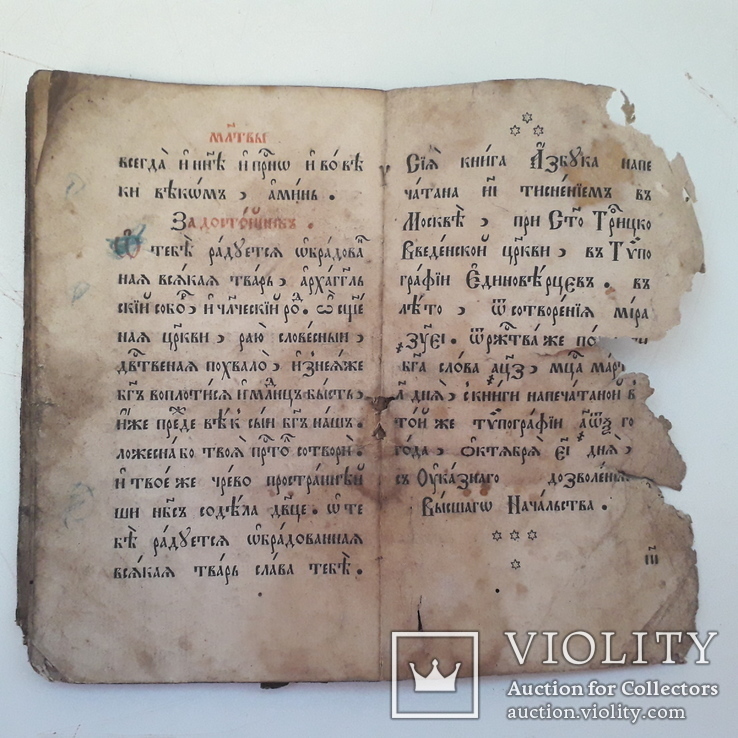 мл҃твы
всегда̀ и҆ ны́нѣ и҆ при́снѡ и҆ во́ вѣ
ки вѣкѡмъ , а҆ми́нь .
За досто́йникъ .
Ѡ҆ тебѣ̀ ра́дуется ѡ҆бра́дова́н
ная вся́кая тва́рь , а҆рха́гг҃ль
скїй собо́ръ , и҆ чл҃ческїй ро́дъ . ѡ҆ сщ҃е́н
ная цр҃кви , раю̀ слове́сныи ,
дв҃ственая похвало̀ , и҆з̾нея́же
бг҃ъ воплоти́ся и҆ мл҃нцъ бы́сть ,
и҆́же пре́жде вѣ́къ сы́и бг҃ъ на́шъ .
ложесна́ бо твоя̀ пр҃то́лъ сотворѝ .
и҆ твоѐ же чре́во простра́ннѣй
ши нб҃съ содѣ́ла дв҃це . ѡ҆ те
бѣ̀ ра́дуется ѡ҆бра́дованная
вся́кая тва́рь сла́ва тебѣ̀ .
Сїѧ̀ кни́га А҆́збука напе
ча́тана тисне́нїемъ въ
Москвѣ̀ , при Ст҃о Тро́ицко
Введе́нской цр҃кви , въ Тѷпо
гра́фїи Е҆диновѣ́рцевъ . въ
лѣ́то , ѿ сотворе́нїя мі́ра
҂зу҃еі . ѿ рж҃тва̀ же по
бг҃а сло́ва аѡ҃з , мц҃а ма́рта
а҃ дня̀ , с̾ кни́ги напеча́таной в̾
то́й же тѷпогра́фїи аѿ҃з го
го́да , ѻ҆ктя́бря е҃і дня̀ ,
съ Оу҆ка́знаго дозволе́нїя
Вы́сшагѡ Нача́льства .
VIOLITY
Auction for Collectors
auction.violity.com